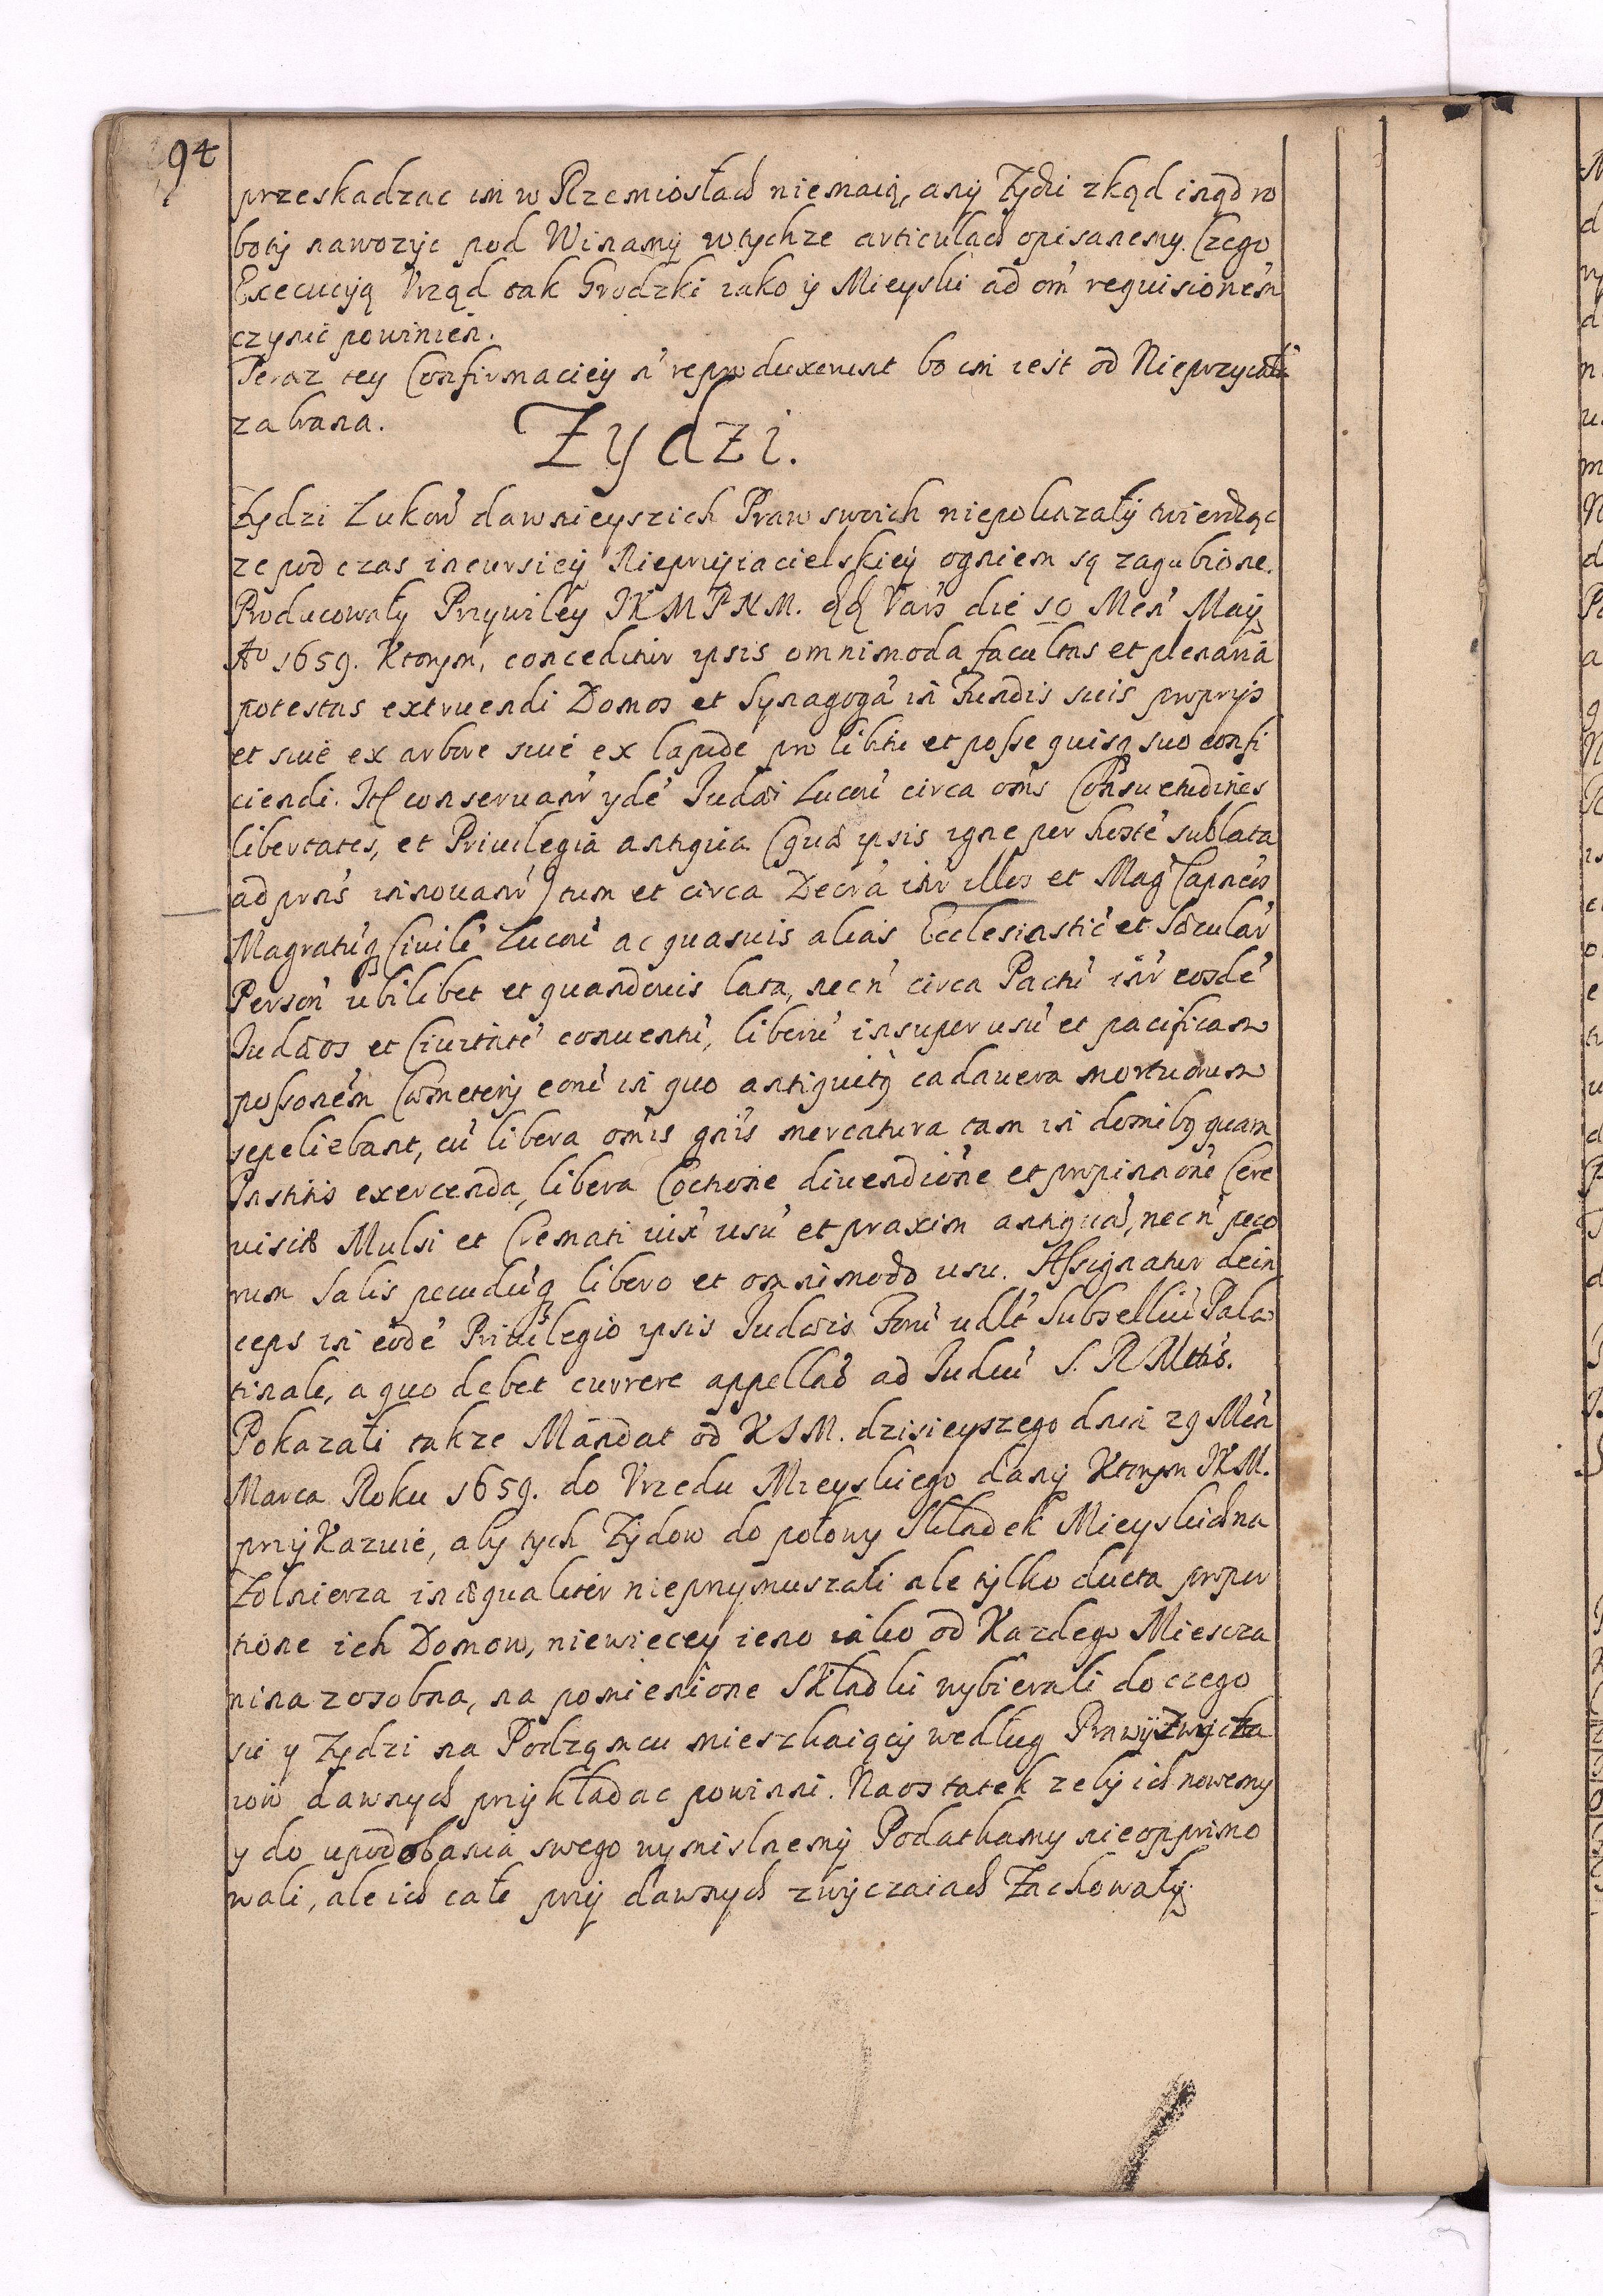 94
przeskadzac im w Rzemiosłach niemaią, any Zydzi zkąd inąd ro
boty nawozyc pod Winamy wtychze articulach opisanemy. Czego
Execucyą Vrząd tak Grodzki iako y Mieyski ad om̃ requisionem̃
czynic powinien.
Teraz tey Confirmaciey ñ reproduxerunt bo im iest od Nieprzyiaciela
zabrana.
Zydzi.
Zydzi Lukow̃ dawnieyszich Praw swoich niepokazały twierdząc
ze pod czas incursiey Nieprzyiacielskiey ogniem są zagubione.
Producowały Przywiley JKMPNM. Vars̃ die 10 Men̈ Maij
Aº 1659. Ktorym, conceditur ipsis omnimoda facultas et plenaria
potestas extruendi Domos et Synagogã in Fundis suis proprijs
et siue ex arbore siue ex lapide pro libitu et posse quisq suo confi
ciendi. It conseruant̃ ydẽ Judæi Lucoũ circa om̃s Consuetudines
libertates, et Priuilegia antiqua (quæ ipsis igne per hostẽ sublata
ad prñs innouant̃) tum et circa Decrã int̃ illos et Mag̃ Capneos
Magratũq Ciuilẽ Lucoũ ac quasuis alias Ecclesiastic̃ et Sæcular̃
Person̈ ubilibet et quandouis lata, necñ circa Pactũ int̃ eosdẽ
Judæos et Ciuitatẽ conuentũ, liberũ insuper usũ et pacificam
possionem̃ Cœmeterij eorũ in quo antiquitq cadauera mortuorum
sepeliebant, cũ libera om̃is gñis mercatura tam in domibq quam
Institis exercenda, libera Coctione diuendic̃one et propinaõne Cere
uisiæ Mulsi et Cremati iux̃ usũ et praxim antiquã, necñ peco
rum Salis pecudũq libero et omnimodo usu. Assignatur dein
ceps in eodẽ Priuilegio ipsis Judæis Forũ udlt̃ Subselliũ Pala
tinale, a quo debet currere appellaõ ad Judiũ S. R Mttis.
Pokazali takze Mandat od KJM. dzisieyszego dnia 29 Men̈
Marca Roku 1659. do Vrzedu Mieyskiego dany Ktorym JKM.
przyKazuie, aby tych Zydow do połowy Składek Mieyskich na
Zolnierza inæqualiter nieprzymuszali ale tylko ducta propor
tione ich Domow, niewiecey ieno iako od Kazdego Miescza
nina zosobna, na pomienione Składki wybierali do czego
sie y Zydzi na Podzamcu mieszkaiącij według Prawy Zwycza
iow dawnych przykładac powinni. Naostatek zeby ich nowemy
y do upodobania swego wymislnemy Podatkamy nieopprimo
wali, ale ich cale przy dawnych zwyczaiach Zachowaly.